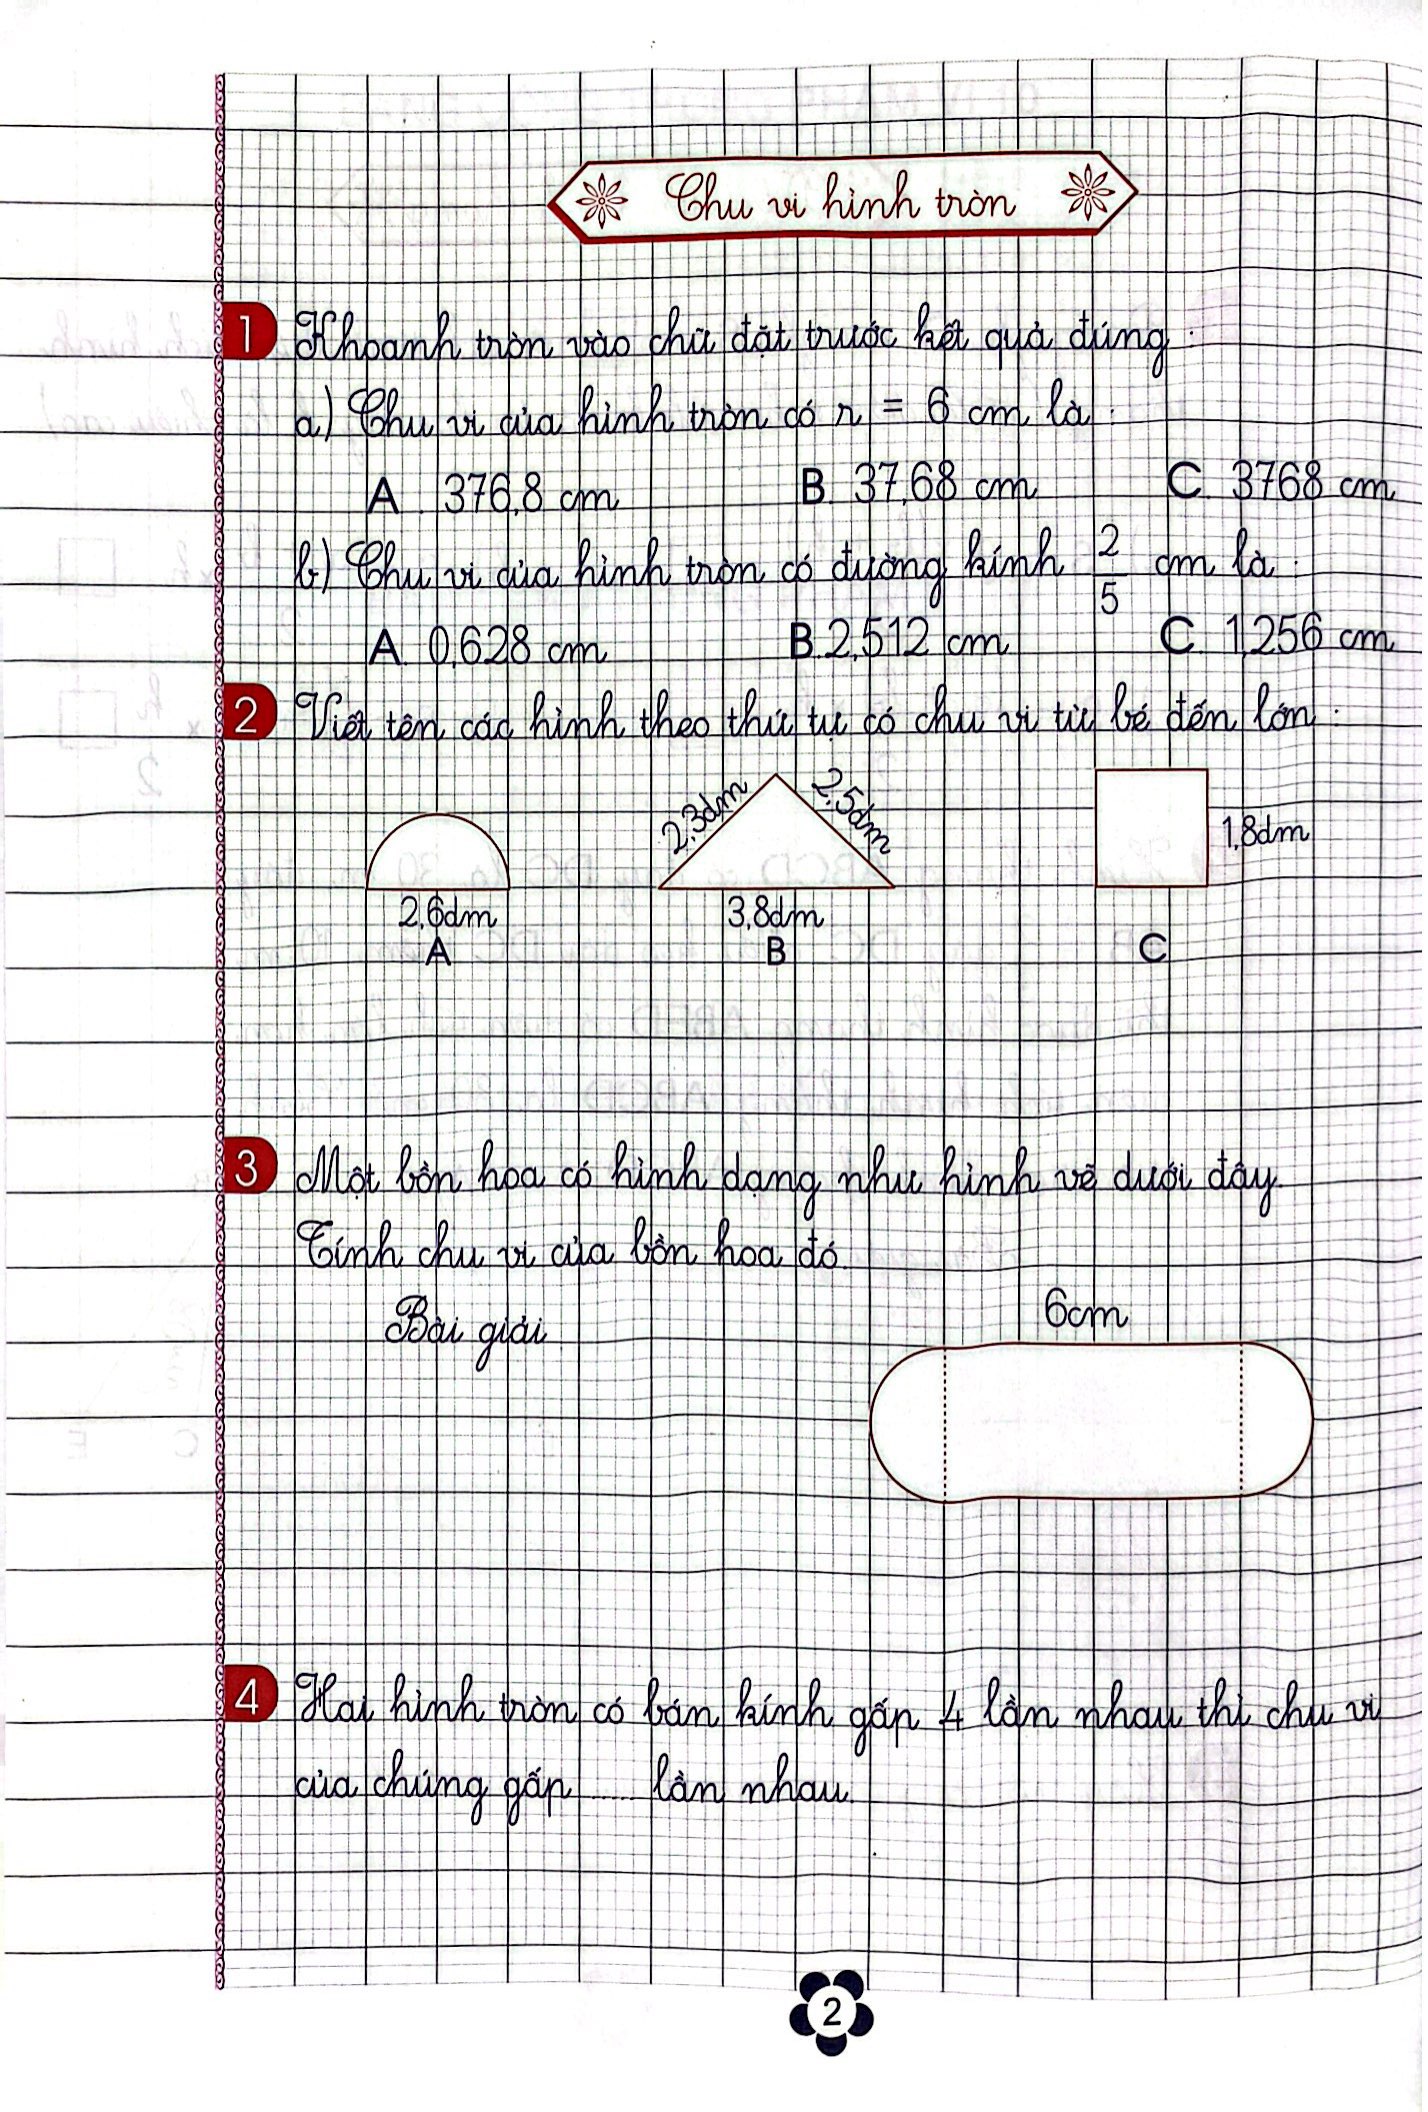 Chu vi hình tròn
1 Khoanh tròn vào chữ đặt trước kết quả đúng :
a) Chu vi của hình tròn có r = 6 cm là :
A. 376,8 cm B. 37,68 cm C. 3768 cm
b) Chu vi của hình tròn có đường kính 2/5 cm là :
A. 0,628 cm B. 2,512 cm C. 1,256 cm
2 Viết tên các hình theo thứ tự có chu vi từ bé đến lớn :
2,3dm 2,5dm
1,8dm
2,6dm 3,8dm
A B C
3 Một bồn hoa có hình dạng như hình vẽ dưới đây.
Tính chu vi của bồn hoa đó.
Bài giải
6cm
4 Hai hình tròn có bán kính gấp 4 lần nhau thì chu vi
của chúng gấp ..... lần nhau.
2